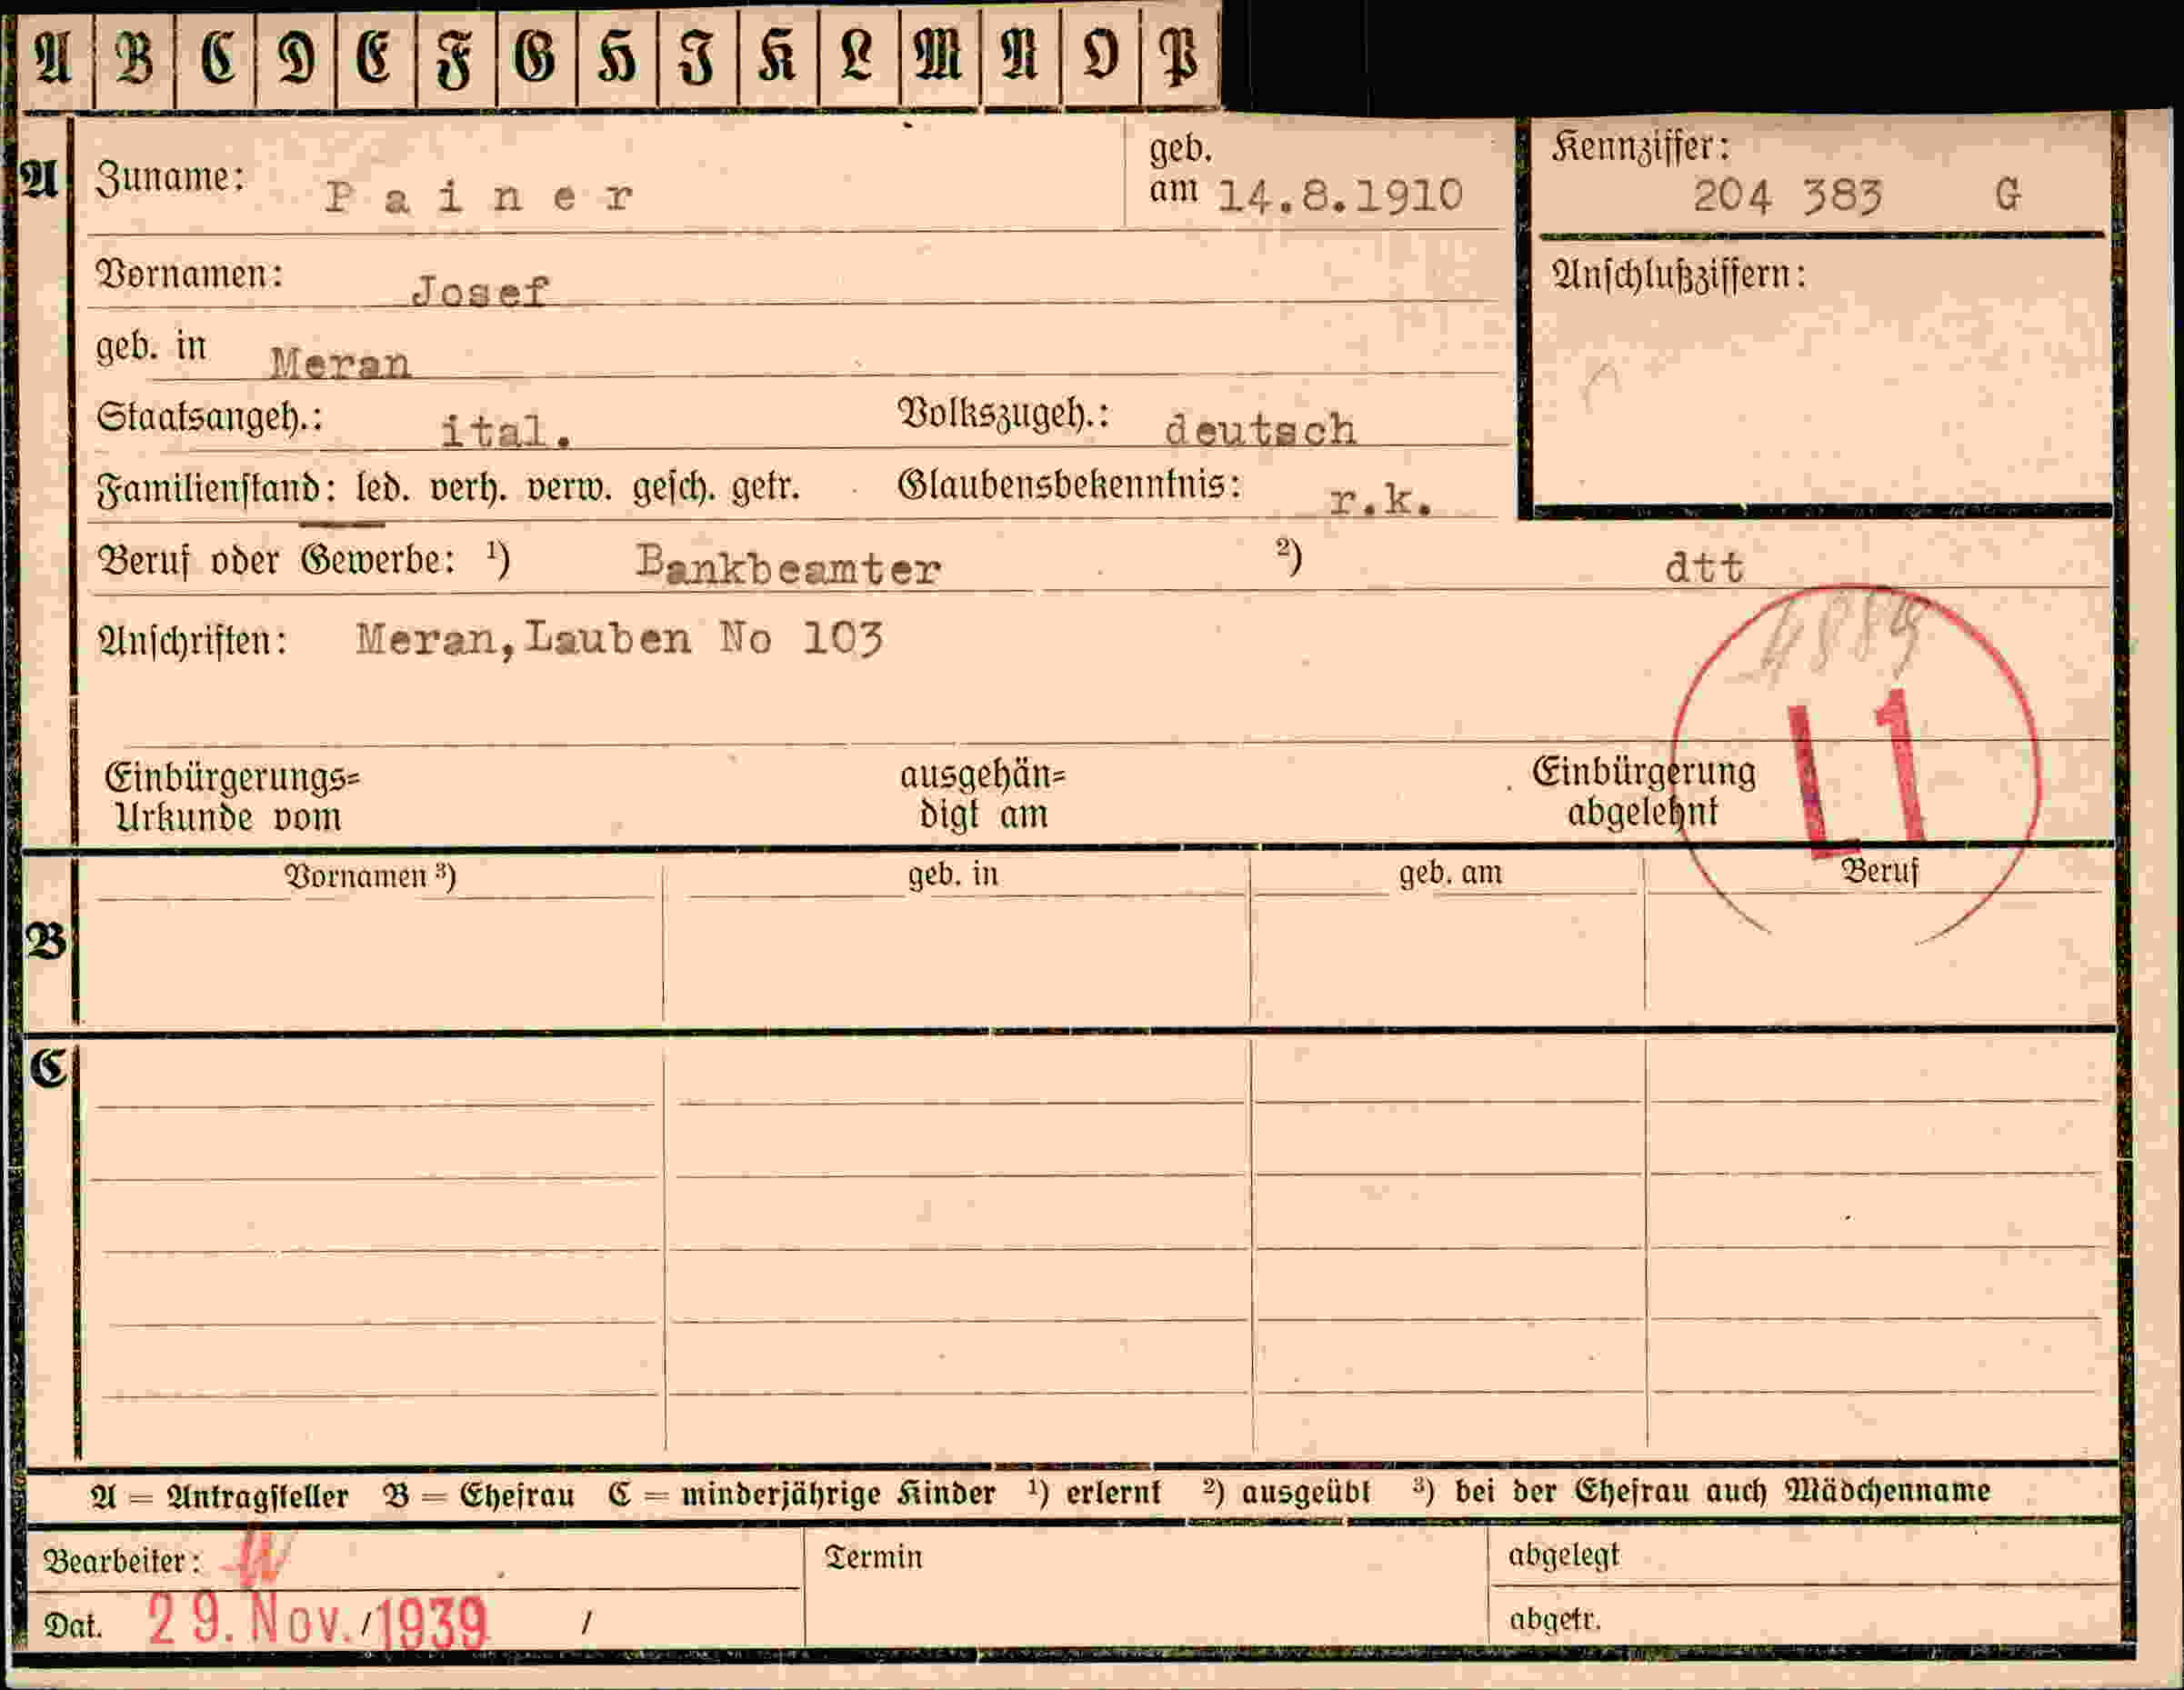 A B C D E F G H I K L M N O P
A Zuname: Painer geb. am 14.8.1910 Kennziffer: 204 383 G
Vornamen: Josef Anschlußziffern:
geb. in Meran
Staatsangeh.: ital. Volkszugeh.: deutsch
Familienstand: led. verh. verw. gesch. getr. Glaubensbekenntnis: r.k.
Beruf oder Gewerbe: ¹) Bankbeamter ²) dtt
Anschriften: Meran, Lauben No 103
4889
L1
Einbürgerungs= ausgehän= Einbürgerung
Urkunde vom digt am abgelehnt
Vornamen ³) geb. in geb. am Beruf
B
C
A = Antragsteller B = Ehefrau C = minderjährige Kinder ¹) erlernt ²) ausgeübt ³) bei der Ehefrau auch Mädchenname
Bearbeiter: Termin abgelegt
Dat. 29. Nov. / 1939 / abgetr.